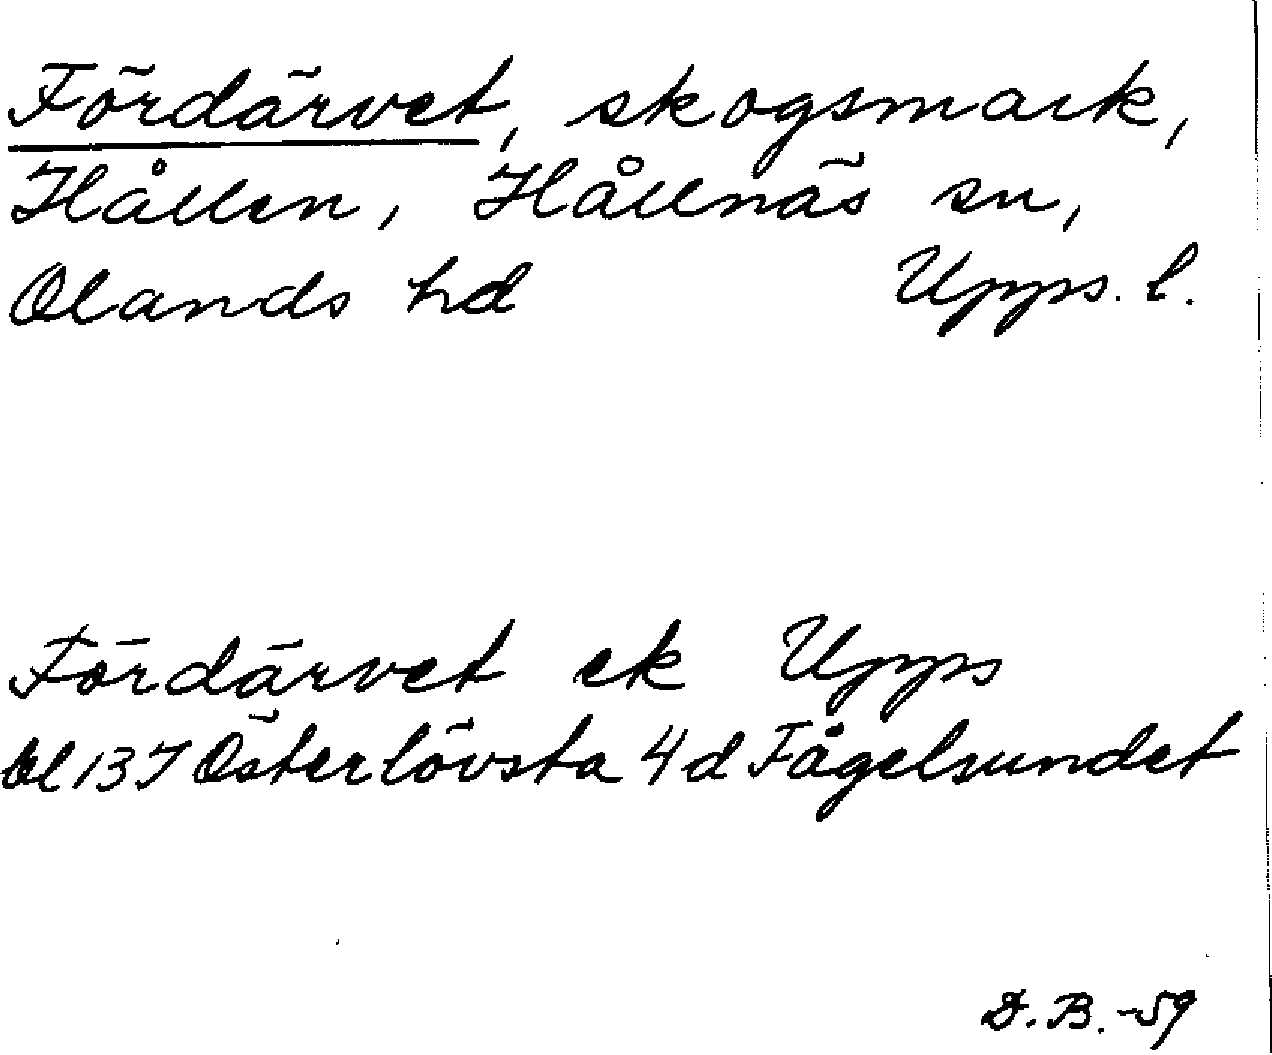 Fördärvet, skogsmark,
Hållen, Hållnäs sn,
Olands hd Upps. l.
Fördärvet ek Upps
bl 13 I Österlövsta 4 d Fågelsundet
D.B.-59